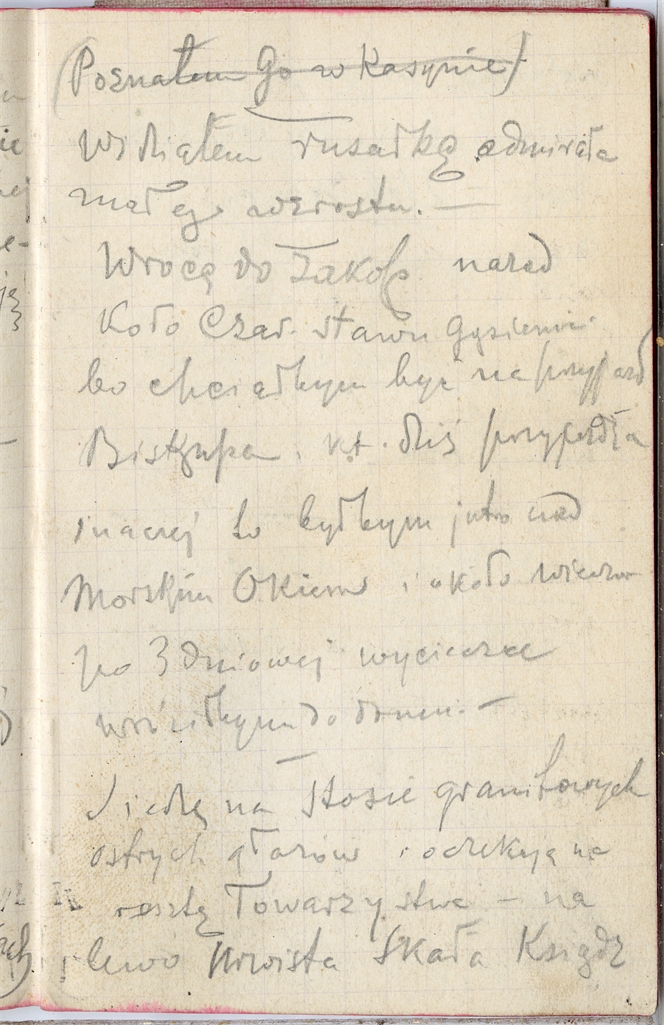 (Poznałem Go w Kasynie)
Widziałem rusałkę admirała
małego wzrostu. —
Wrocę do Zakop nazad
Koło Czar. stawu Gąsienic
bo chciałbym być na przyjazd
Biskupa. kt. dziś przyjeżdża
inaczej to byłbym jutro nad
Morskim Okiem i około wieczor
po 3 dniowej wycieczce
wróciłbym do domu. —
Siedzę na stosie granitowych
ostrych głazów i oczekuję na
resztę Towarzystwa — na
lewo Krwista Skała Ksiądz